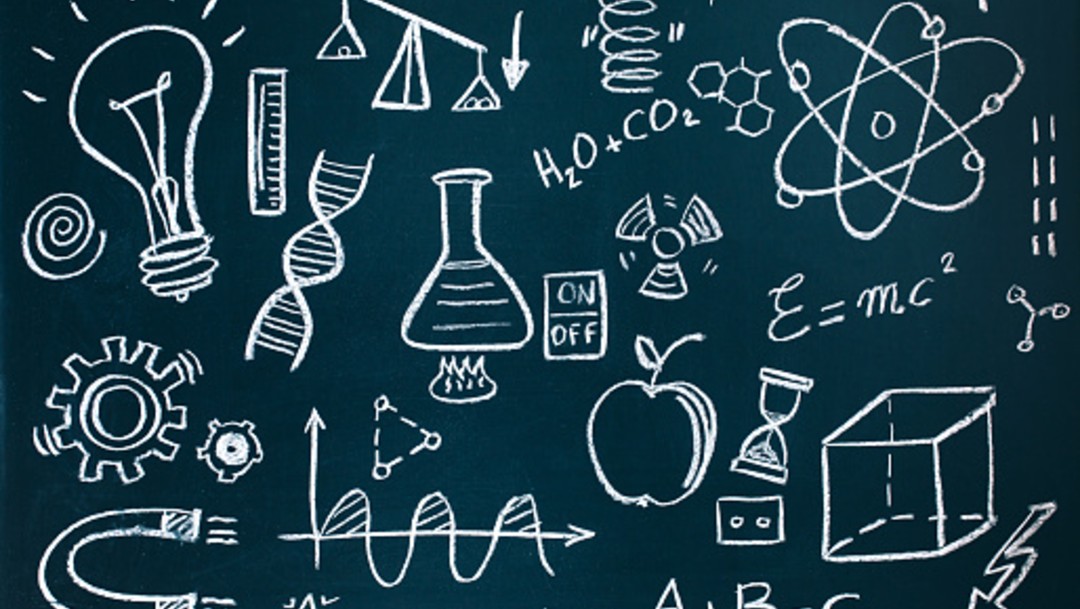 H₂O+CO₂
ON
OFF
E=mc²
A+B=C